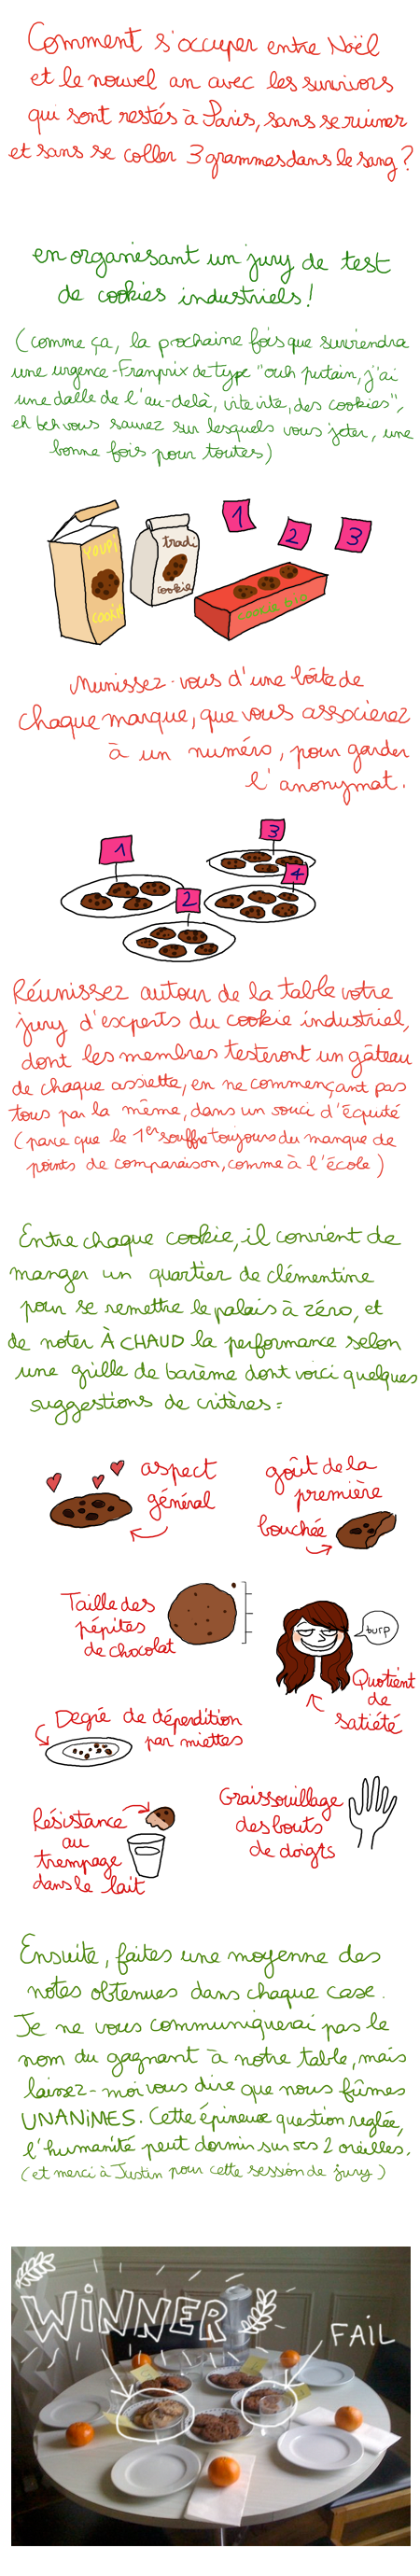 Comment s'occuper entre Noël
et le nouvel an avec les survivors
qui sont restés à Paris, sans se ruiner
et sans se coller 3 grammes dans le sang ?
en organisant un jury de test
de cookies industriels !
(comme ça, la prochaine fois que surviendra
une urgence-Franprix de type "ouh putain, j'ai
une dalle de l'au-delà, vite vite, des cookies",
eh beh vous saurez sur lesquels vous jeter, une
bonne fois pour toutes)
YOUPI
cookie
tradi
cookie
cookie bio
1
2
3
Munissez-vous d'une boîte de
chaque marque, que vous associerez
à un numéro, pour garder
l'anonymat.
1
3
2
4
Réunissez autour de la table votre
jury d'experts du cookie industriel,
dont les membres testeront un gâteau
de chaque assiette, en ne commençant pas
tous par la même, dans un souci d'équité
(parce que le 1er souffre toujours du manque de
points de comparaison, comme à l'école)
Entre chaque cookie, il convient de
manger un quartier de clémentine
pour se remettre le palais à zéro, et
de noter À CHAUD la performance selon
une grille de barème dont voici quelques
suggestions de critères :
aspect
général
goût de la
première
bouchée
Taille des
pépites
de chocolat
burp
Quotient
de
satiété
Degré de déperdition
par miettes
Résistance
au
trempage
dans le lait
Graissouillage
des bouts
de doigts
Ensuite, faites une moyenne des
notes obtenues dans chaque case.
Je ne vous communiquerai pas le
nom du gagnant à notre table, mais
laissez-moi vous dire que nous fûmes
UNANiMES. Cette épineuse question reglée,
l'humanité peut dormir sur ses 2 oreilles.
(et merci à Justin pour cette session de jury)
WiNNER
FAiL